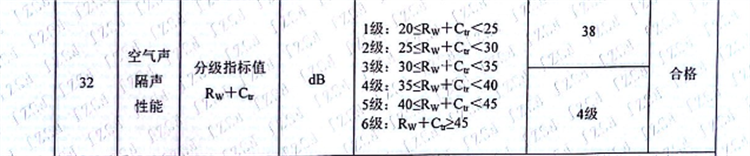 32
空气声
隔声
性能
分级指标值
Rw+Ctr
dB
1级：20≤Rw+Ctr<25
2级：25≤Rw+Ctr<30
3级：30≤Rw+Ctr<35
4级：35≤Rw+Ctr<40
5级：40≤Rw+Ctr<45
6级：Rw+Ctr≥45
38
4级
合格